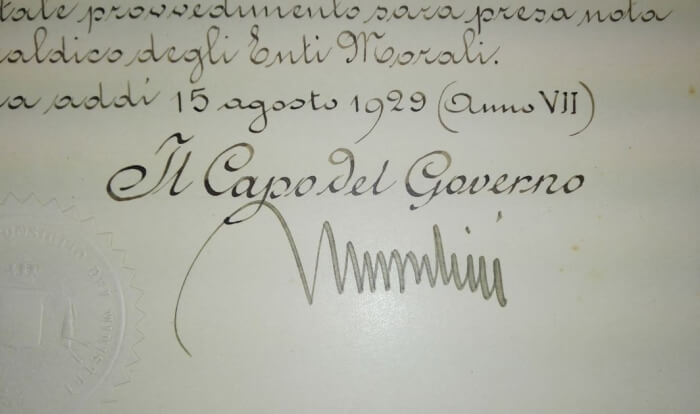 tale provvedimento sarà presa nota
aldico degli Enti Morali.
a addì 15 agosto 1929 (Anno VII)
Il Capo del Governo
Mussolini